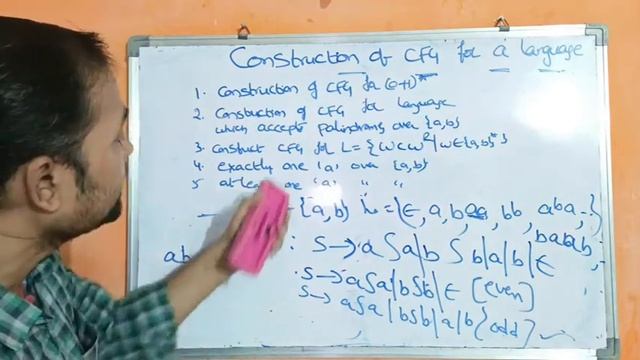 Construction of CFG for a language
1. Construction of CFG for (0+1)*
2. Construction of CFG for language
which accepts Palindroms over {a,b}
3. construct CFG for L = {wcwᴿ | w∈{a,b}*}
4. exactly one 'a' over {a,b}
5 at least one 'a' " "
{a,b} L = {∈, a, b, aa, bb, aba, -}
babab,
ab : S → aSa|bSb|a|b|∈
: S → aSa|bSb|∈ [even]
S → aSa|bSb|a|b {odd}